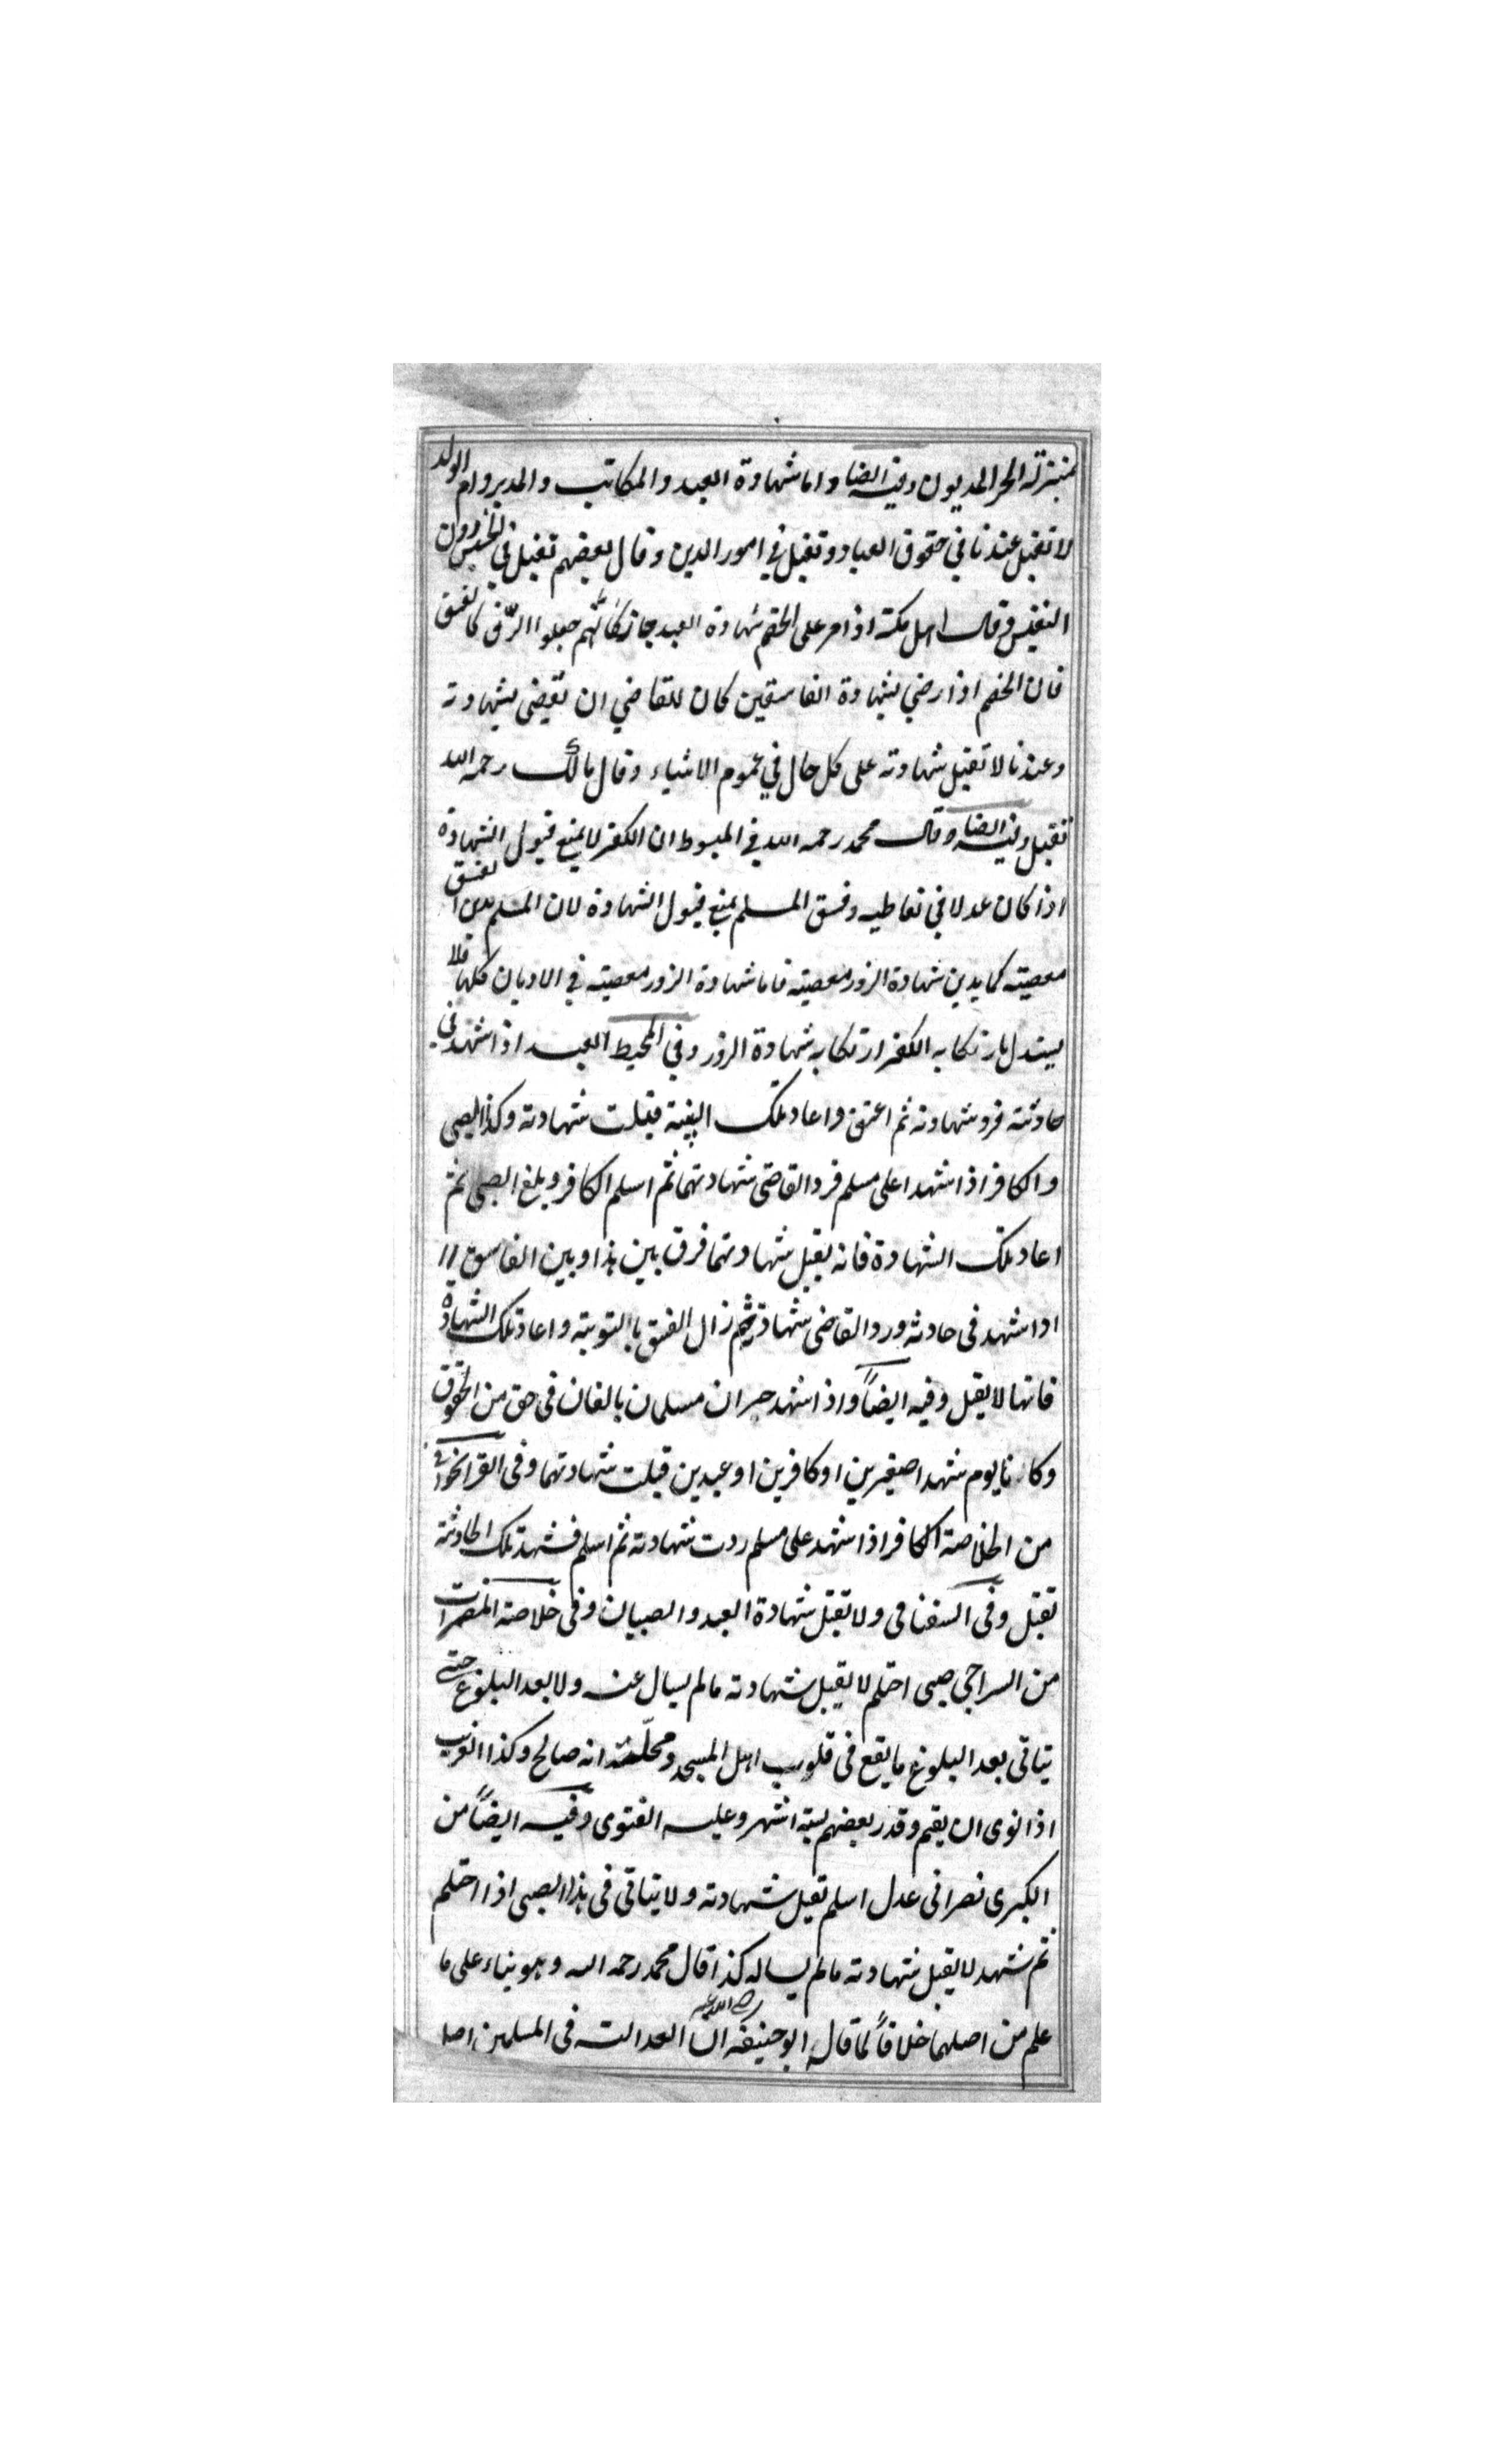 بمنزلة الحر المديون وفيه ايضا واما شهادة العبد والمكاتب والمدبر وام الولد
لا تقبل عندنا في حقوق العباد وتقبل في امور الدين وقال بعضهم تقبل في الخسيس دون
النفيس وقال اهل مكة اذا مر على الخصم شهادة العبد جاز كانهم جعلوا الرق كالفسق
فان الخصم اذا رضي بشهادة الفاسقين كان للقاضي ان يقضي بشهادته
وعندنا لا تقبل شهادته على كل حال في عموم الاشياء وقال مالك رحمه الله
تقبل وفيه ايضا وقال محمد رحمه الله في المبسوط ان الكفر لا يمنع قبول الشهادة
اذا كان عدلا في تعاطيه وفسق المسلم يمنع قبول الشهادة لان المسلم يدين الفسق
معصيته كما يدين شهادة الزور معصيته فاما شهادة الزور معصيته في الاديان كلها فلا
يستدل بارتكابه الكفر ارتكابه شهادة الزور وفي المحيط العبد اذا شهد في
حادثته فرد شهادته ثم اعتق واعاد تلك البينة قبلت شهادته وكذا الصبي
والكافر اذا شهدا على مسلم فرد القاضي شهادتهما ثم اسلم الكافر وبلغ الصبي ثم
اعاد تلك الشهادة فانه يقبل شهادتهما فرق بين هذا وبين الفاسق
اذا شهد في حادثه ورد القاضي شهادته ثم زال الفسق بالتوبته واعاد تلك الشهادة
فانها لا يقبل وفيه ايضاً واذا شهد حران مسلمان بالغان في حق من الحقوق
وكانا يوم شهدا صغيرين او كافرين او عبدين قبلت شهادتهما وفي القراخواني
من الخلاصة الكافر اذا شهد على مسلم ردت شهادته ثم اسلم فشهد تلك الحادثته
تقبل وفي السغناقي ولا تقبل شهادة العبد والصبيان وفي خلاصة المضمرات
من السراجي صبي احتلم لا يقبل شهادته مالم يسال عنه ولا بعد البلوغ حتى
يتاتى بعد البلوغ ما يقع في قلوب اهل المسجد ومحلته انه صالح وكذا الغريب
اذا نوى ان يقيم وقدر بعضهم بستة اشهر وعليه الفتوى وفيه ايضاً من
الكبرى نصراني عدل اسلم تقبل شهادته ولا يتاتى في هذا الصبي اذا احتلم
ثم شهد لا يقبل شهادته مالم يساله كذا قال محمد رحمه الله وهو بناء على ما
علم من اصلهما خلافاً لما قاله ابو حنيفه رضي الله عنه ان العدالت في المسلمين اصلا